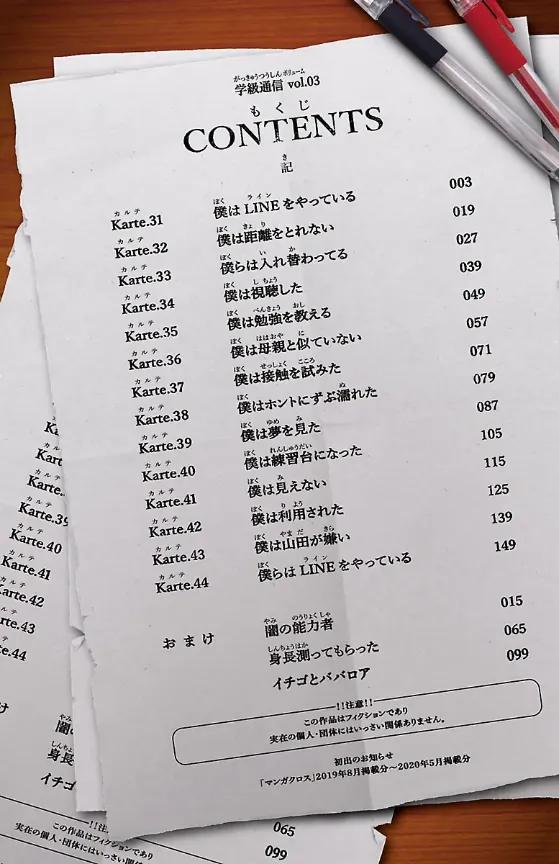 学級通信 vol.03
もくじ
CONTENTS
記
Karte.31 僕は LINE をやっている 003
Karte.32 僕は距離をとれない 019
Karte.33 僕らは入れ替わってる 027
Karte.34 僕は視聴した 039
Karte.35 僕は勉強を教える 049
Karte.36 僕は母親と似ていない 057
Karte.37 僕は接触を試みた 071
Karte.38 僕はホントにずぶ濡れた 079
Karte.39 僕は夢を見た 087
Karte.40 僕は練習台になった 105
Karte.41 僕は見えない 115
Karte.42 僕は利用された 125
Karte.43 僕は山田が嫌い 139
Karte.44 僕らは LINE をやっている 149
おまけ 闇の能力者 015
身長測ってもらった 065
イチゴとババロア 099
!!注意!!
この作品はフィクションであり
実在の個人・団体にはいっさい関係ありません。
初出のお知らせ
「マンガクロス」2019年8月掲載分〜2020年5月掲載分
Karte.39
Karte.40
Karte.41
Karte.42
065
099
この作品はフィクションであり
実在の個人・団体にはいっさい